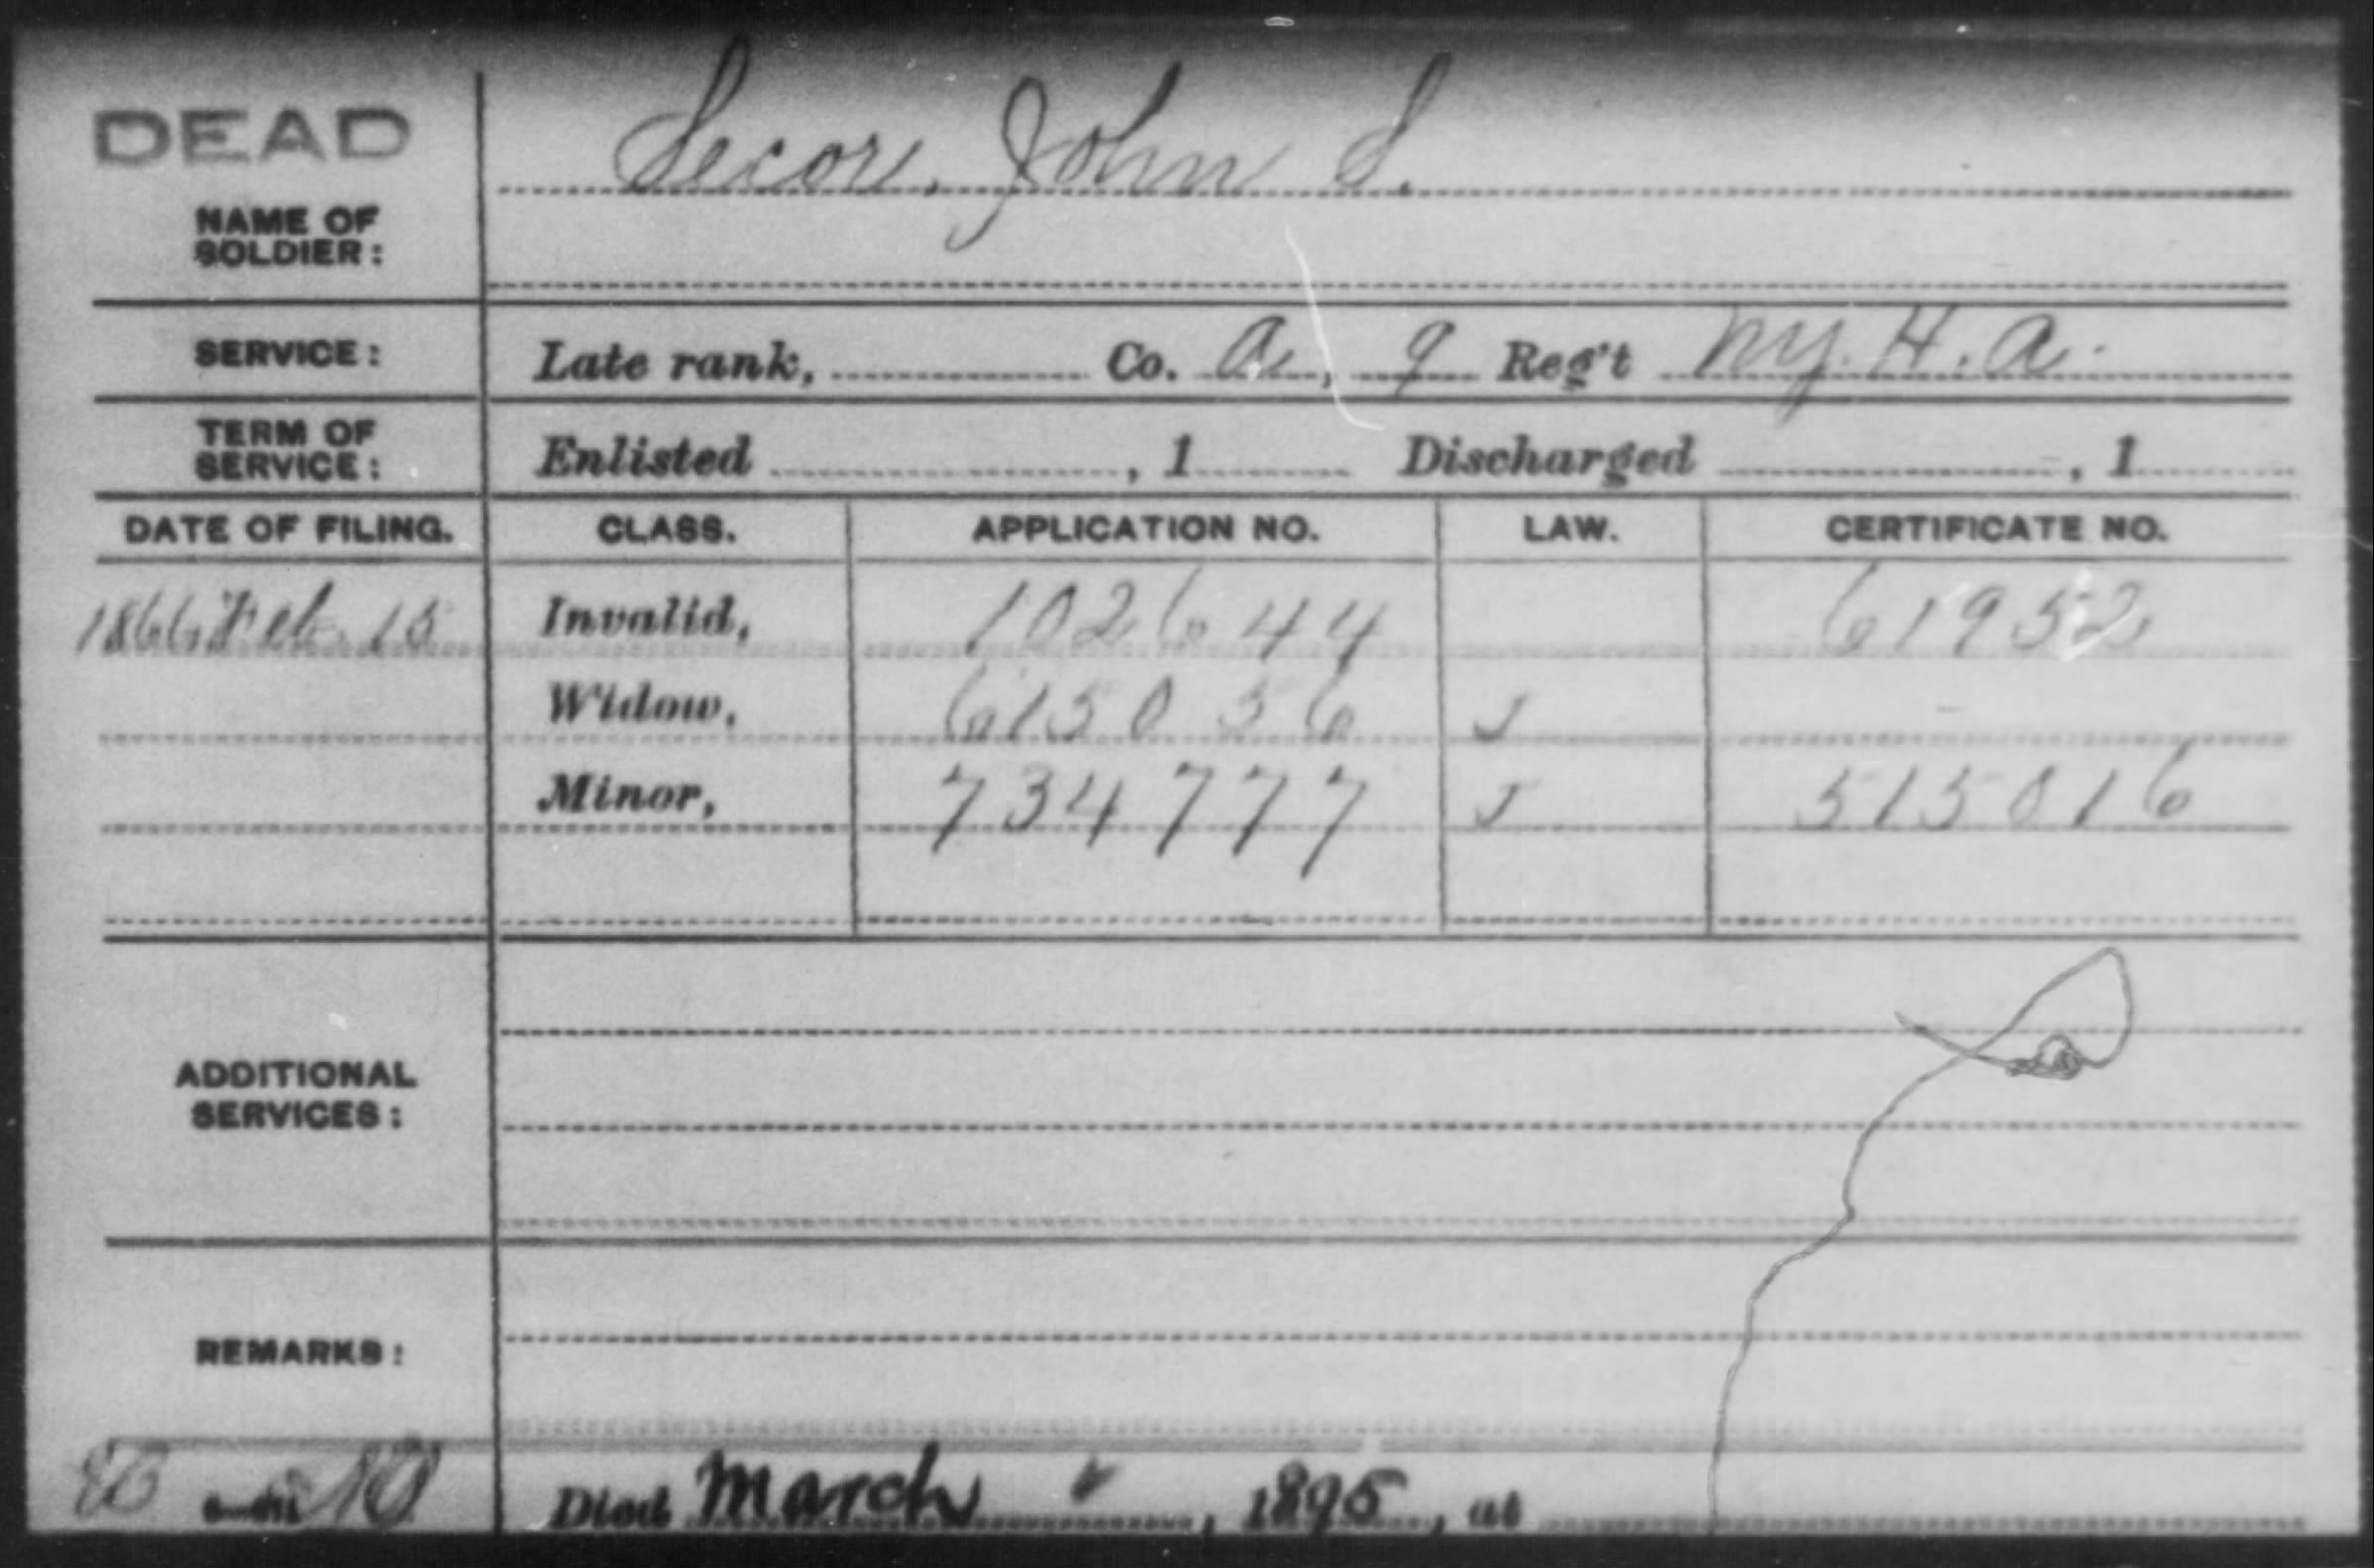 DEAD
Secor, John S.
NAME OF
SOLDIER:
SERVICE: Late rank, Co. A, 9 Reg't NY. H. A.
TERM OF
SERVICE: Enlisted , 1 Discharged , 1
DATE OF FILING. CLASS. APPLICATION NO. LAW. CERTIFICATE NO.
1866 Feb. 15 Invalid, 102644 61952
Widow, 615036 J -
Minor, 734777 J 515016
ADDITIONAL
SERVICES:
REMARKS:
Died March , 1895, at